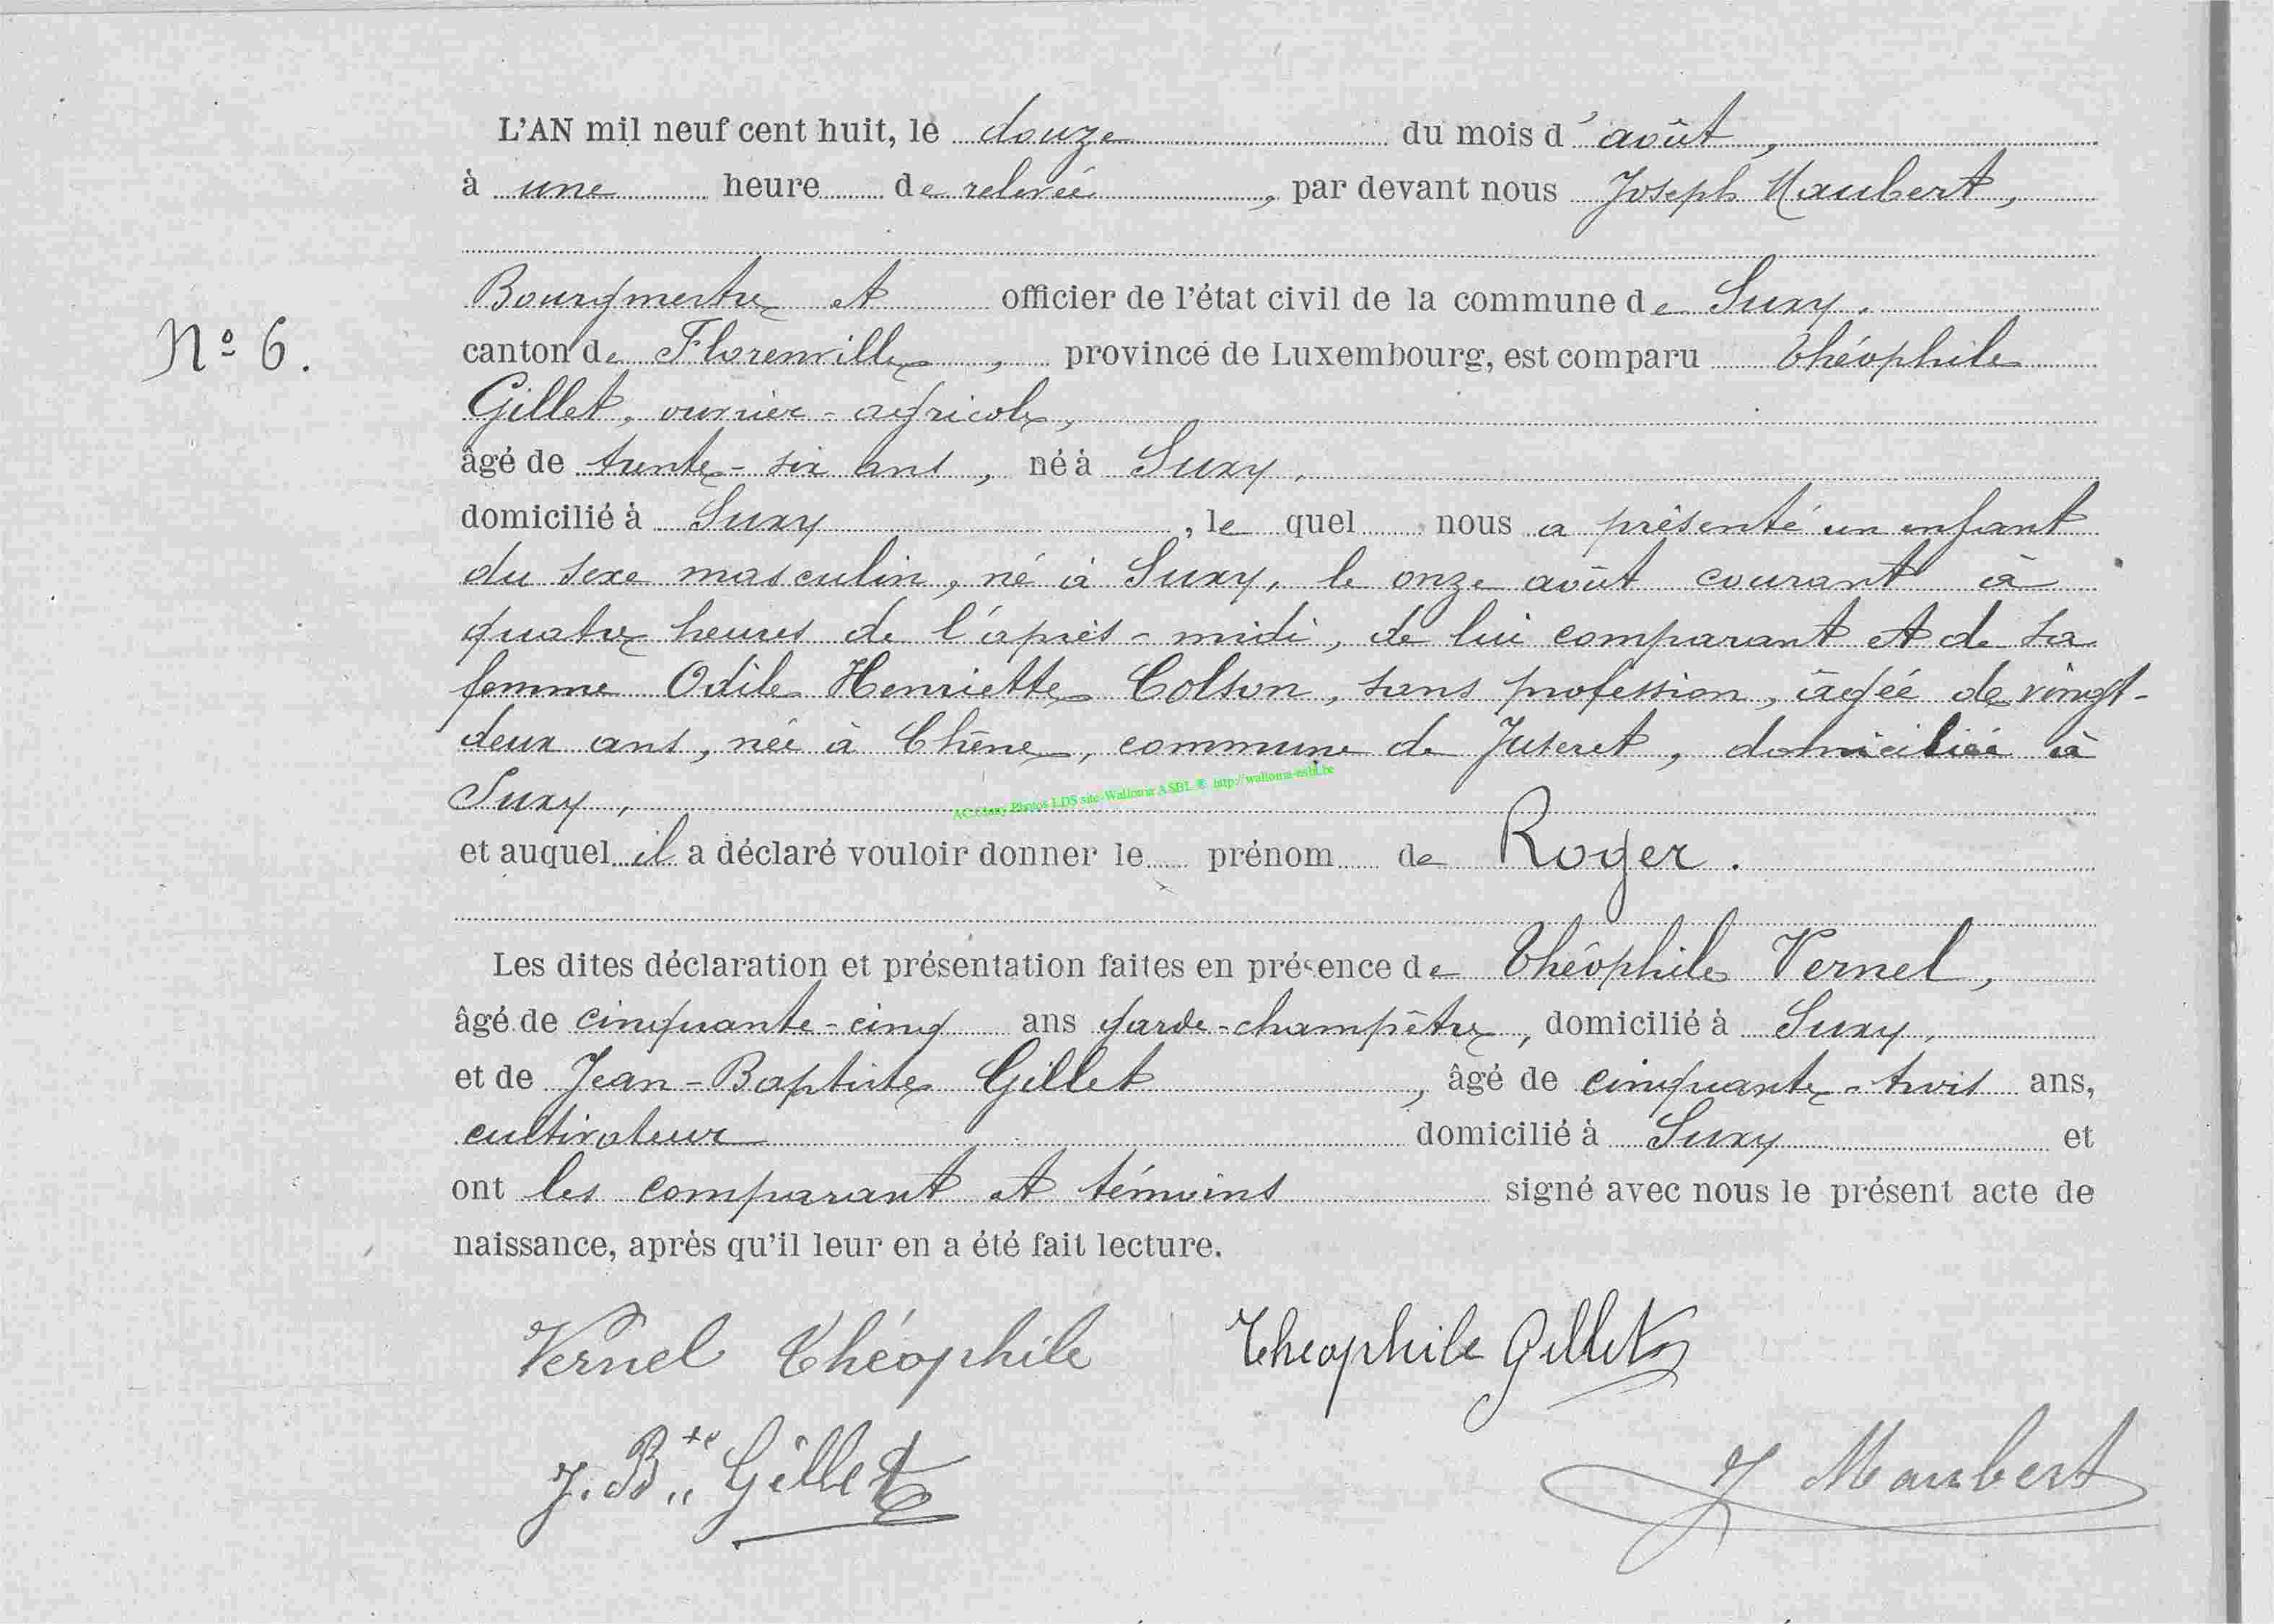 L'AN mil neuf cent huit, le douze du mois d'août,
à une heure de relevée, par devant nous Joseph Maubert,
Bourgmestre et officier de l'état civil de la commune de Suxy.
N° 6.
canton de Florenville, province de Luxembourg, est comparu Théophile
Gillet, ouvrier-agricole,
âgé de trente-six ans, né à Suxy,
domicilié à Suxy, le quel nous a présenté un enfant
du sexe masculin, né à Suxy, le onze août courant à
quatre heures de l'après-midi, de lui comparant et de sa
femme Odile Henriette Colson, sans profession, âgée de vingt-
deux ans, née à Chêne, commune de Juseret, domiciliée à
Suxy,
et auquel il a déclaré vouloir donner le prénom de Roger.
Les dites déclaration et présentation faites en présence de Théophile Vernel,
âgé de cinquante-cinq ans garde-champêtre, domicilié à Suxy,
et de Jean-Baptiste Gillet, âgé de cinquante-trois ans,
cultivateur domicilié à Suxy et
ont les comparant et témoins signé avec nous le présent acte de
naissance, après qu'il leur en a été fait lecture.
Vernel Théophile Theophile Gillet
J. Bte Gillet
J Maubert